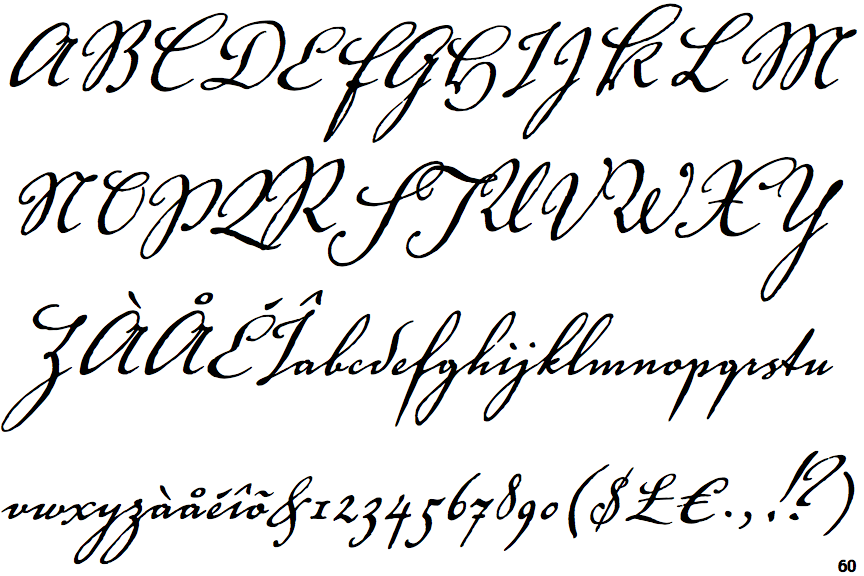 ABCDEFGHIJKLM
NOPQRSTUVWXY
ZÀÅÉÎabcdefghijklmnopqrstu
vwxyzàåéîõ&1234567890($£€.,!?)
60